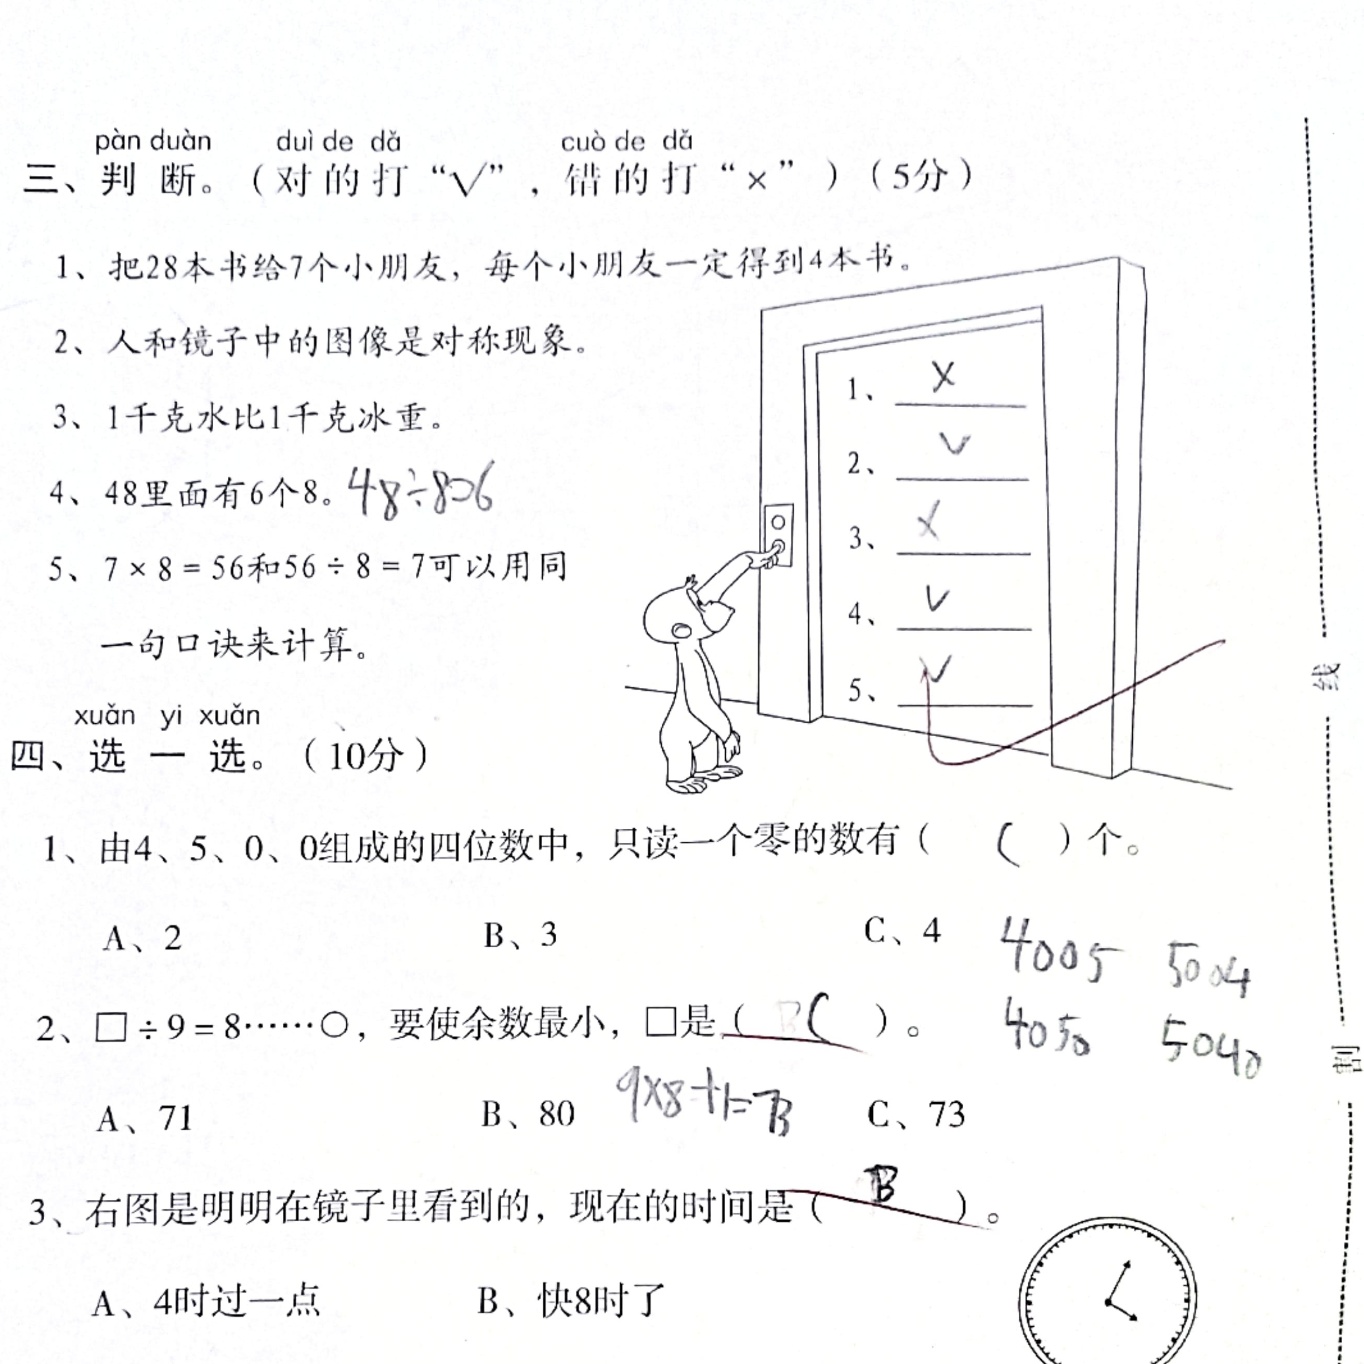 pàn duàn duì de dǎ cuò de dǎ
三、判断。（对的打“√”，错的打“×”）（5分）
1、把28本书给7个小朋友，每个小朋友一定得到4本书。
2、人和镜子中的图像是对称现象。
3、1千克水比1千克冰重。
4、48里面有6个8。48÷8=6
5、7×8=56和56÷8=7可以用同
一句口诀来计算。
1、×
2、√
3、×
4、√
5、√
线
xuǎn yi xuǎn
四、选一选。（10分）
1、由4、5、0、0组成的四位数中，只读一个零的数有（ C ）个。
A、2 B、3 C、4
4005 5004
4050 5040
2、□÷9=8……○，要使余数最小，□是（ C ）。
割
9×8+1=73
A、71 B、80 C、73
3、右图是明明在镜子里看到的，现在的时间是（ B ）。
A、4时过一点 B、快8时了